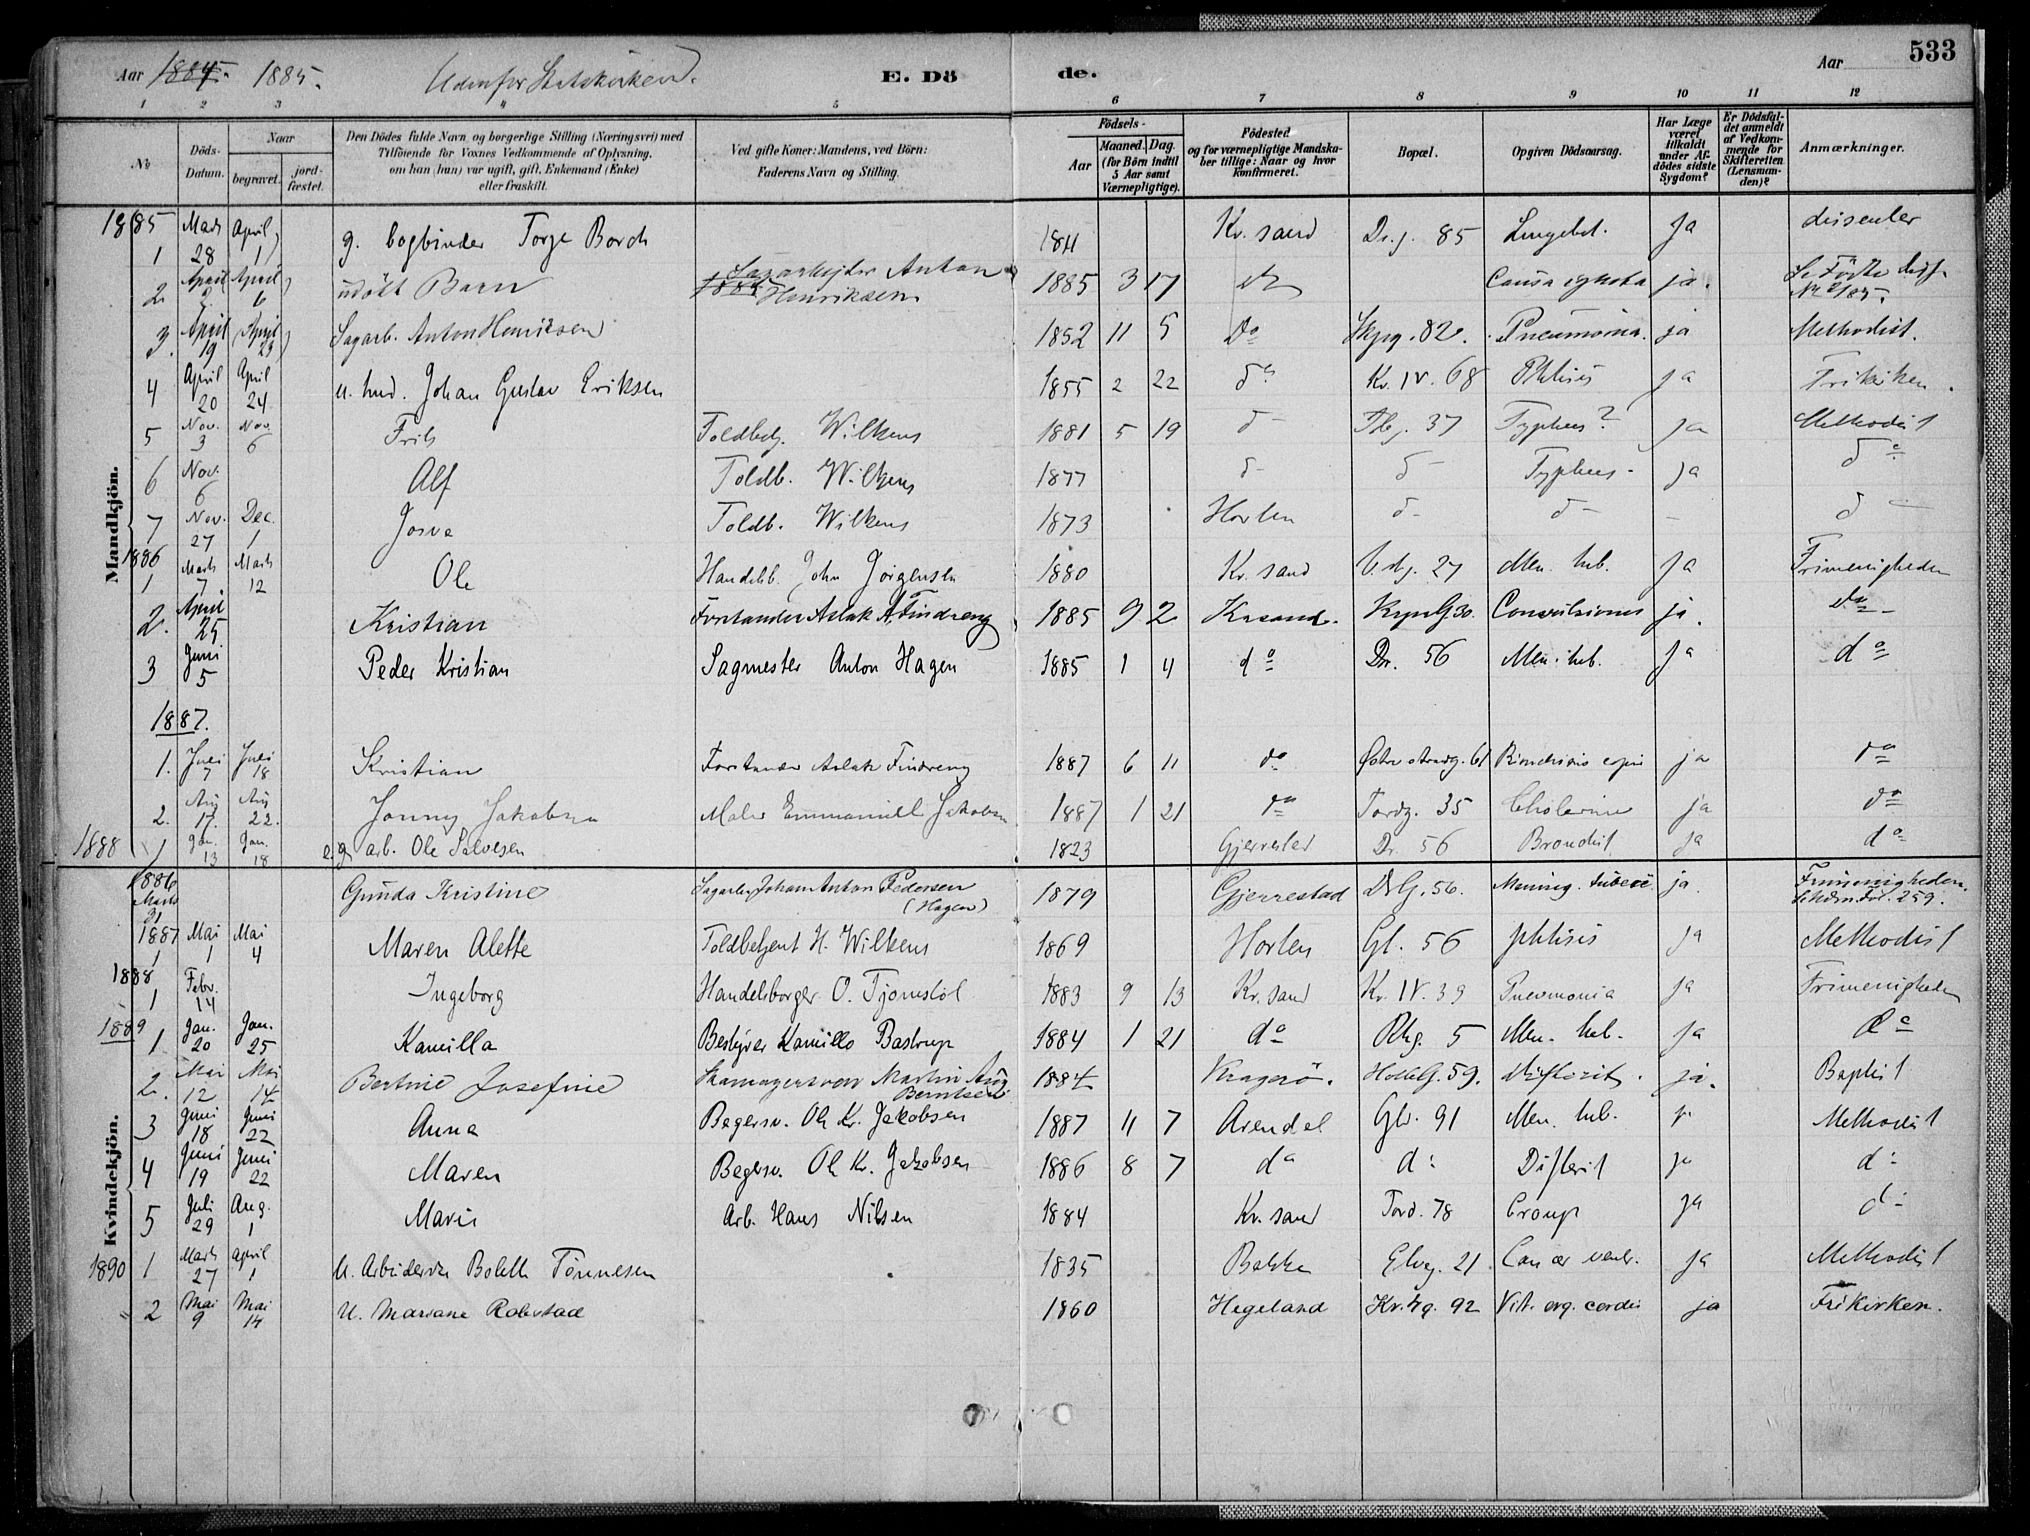 Aar 1884. 1885. Udenfor Statskirken. E. Döde. Aar 533
1 2 3 4 5 6 7 8 9 10 11 12
No
Döds-Datum.
Naar begravet. jordfæstet.
Den Dödes fulde Navn og borgerlige Stilling (Næringsvei) med Tilföiende for Voxnes Vedkommende af Oplysning, om han (hun) var ugift, gift, Enkemand (Enke) eller fraskilt.
Ved gifte Koner: Mandens, ved Börn: Faderens Navn og Stilling.
Födsels- Aar Maaned. Dag. (for Börn indtil 5 Aar samt Værnepligtige).
Födested og for værnepligtige Mandskaber tillige: Naar og hvor konfirmeret.
Bopæl.
Opgiven Dödsaarsag.
Har Læge været tilkaldt under Afdödes sidste Sygdom?
Er Dödsfaldet anmeldt af Vedkommende for Skifteretten (Lensmanden)?
Anmærkninger.
Mandkjön.
1885
1 Marts 28 April 1 g. bogbinder Torge Borch 1811 Kr.sand Dr.g. 85 Lungebet. Ja dissenter
2 April 2 April 6 udöbt Barn Sagarbejder Anton Henriksen 1885 3 17 do Causa ignota ja. Se Födte
3. April 19 April 23 Sagarb. Anton Henriksen 1852 11 5 do 82. Pneumonia. ja Methodist.
4 April 20 April 24 u. Johan Gustav Eriksen 1855 2 22 do Kr. IV. 68 Phthisis ja Frikirken.
5 Nov. 3 Nov. 6 Frits Toldbetj. Wilkens 1881 5 19 d- 37 Typhus? ja Methodist
6 Nov. 6 Alf Toldb. Wilkens 1877 d- d- Typhus- ja do
7 Nov. 27 Dec. 1 Josva Toldb. Wilkens 1873 Horten d- d- - d-
1886
1 Marts 7 Marts 12 Ole Handelsb. John Jörgensen 1880 Kr.sand V.stg. 27 Men. tub. ja Frimenigheden
2. April 25 Kristian Forstander Aslak A. Findreng 1885 9 2 Krsand. KrpnG 30. Convulsiones ja. do-
3 Juni 5 Peder Kristian Sagmester Anton Hagen 1885 1 4 do Dr. 56 Men. tub. Ja do
1887.
1. Juli 7 Juli 18 Kristian Forstander Aslak Findreng 1887 6 11 do Østre strandg. 61 ja do
2. Aug 17. Aug 22. Jonny Jakobsen Maler Emmanuell Jakobsen 1887 1 21 do Tordg. 35 Cholerine ja do
1888 1 Jan. 13 Jan. 18 e.g. arb. Ole Salvesen 1823 Gjerrestad Dr. 56 Bronchit ja do
Kvindekjön.
1886 Marts 31 Gunda Kristine Sagarb. Johan Anton Pedersen (Hagen) 1879 Gjerrestad Dr.G. 56. Mening. tubercl ja. Frimenigheden. 259.
1887 1 Mai 1 Mai 4 Maren Alette Toldbetjent H. Wilkens 1869 Horten Gl. 56 phthisis ja Methodist
1888 1 Febr. 14 Ingeborg Handelsborger O. Tjomstöl 1883 9 13 Kr.sand Kr. IV. 39 Pnevmonia ja Frimenigheden
1889 1 Jan. 20 Jan. 25 Kamilla Bestyrer Kamillo Bastrup 1884 1 21 do Rhg. 5 Men. tub. ja do
2. Mai 12 Mai 14 Bertine Josefine Skomagersvend Martin Aug. Berntsen 1884 Kragerö. HolbG. 59. Difterit. ja. Baptist
3 Juni 18 Juni 22 Anna Bagersv. Ole Kr. Jakobsen 1887 11 7 Arendal Glv. 91 Men. tub. ja Methodist
4 Juni 19 Juni 22 Maren Bagersv. Ole Kr. Jakobsen 1886 8 7 do d: Difterit ja d:
5 Juli 29 Aug. 1 Marie Arb. Hans Nilsen 1884 Kr.sand Tord. 78 Croup ja d:
1890 1 Marts 27 April 1 U. Arbeiderske Bolette Tönnesen 1835 Bakke Elveg. 21 Cancer ventr. ja Methodist
2 Mai 9 Mai 14 U. Mariane Robstad 1860 Hegeland Kr.4g. 92 Vit. org. cordis ja Frikirken.